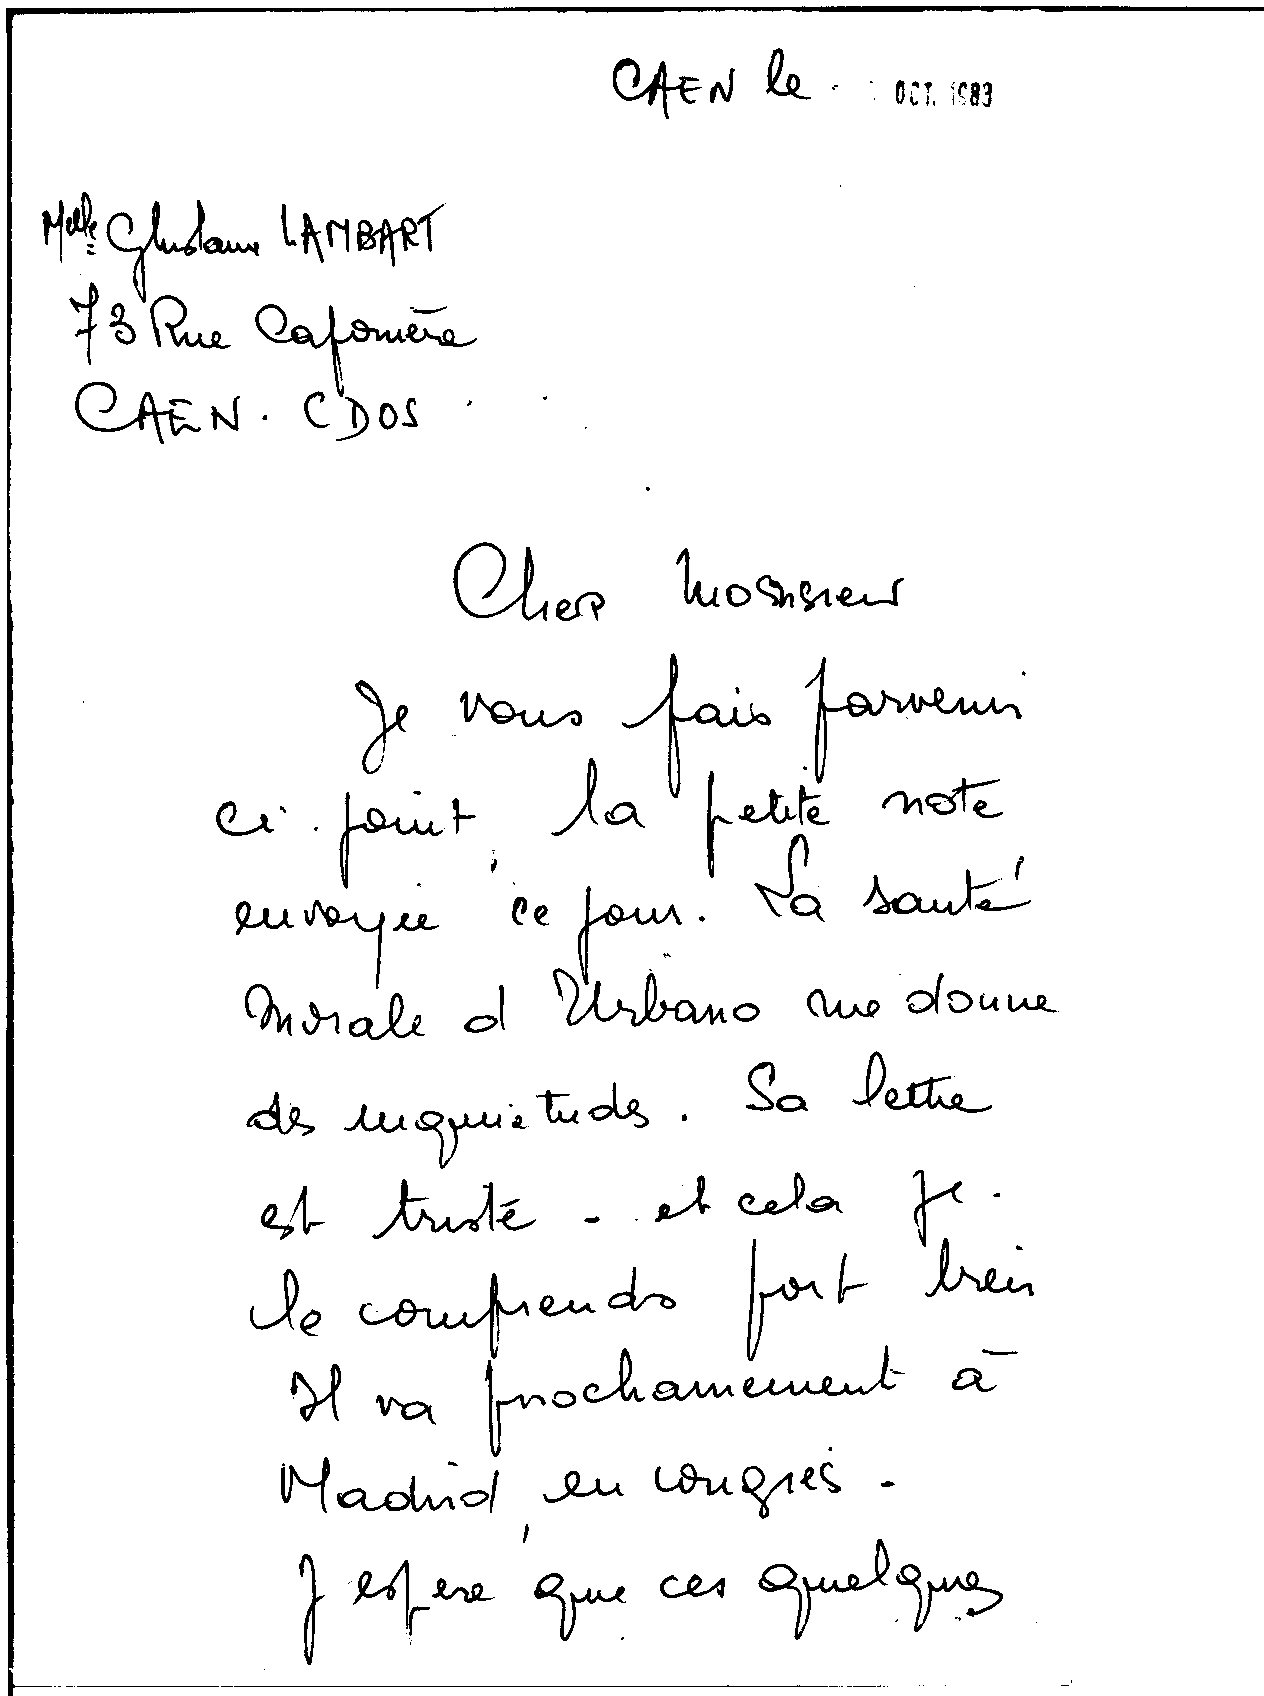 CAEN le OCT. 1983
Melle Ghislaine LAMBART
73 Rue Caponière
CAEN. CDOS
Cher Monsieur
Je vous fais parvenir
ci. joint, la petite note
envoyée ce jour. La santé
Morale d'Urbano me donne
des inquiétudes. Sa lettre
est triste - et cela je
le comprends fort bien
Il va prochainement à
Madrid, en congrès.
J espère que ces quelques